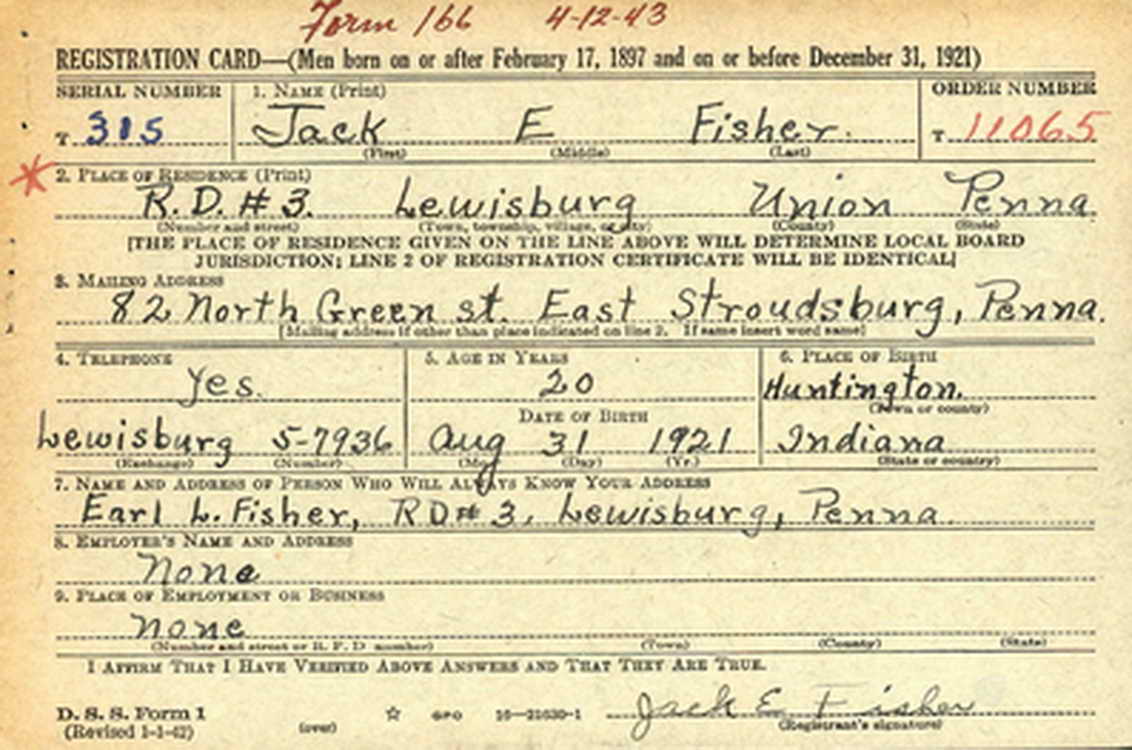 Form 166 4-12-43
REGISTRATION CARD—(Men born on or after February 17, 1897 and on or before December 31, 1921)
SERIAL NUMBER 1. NAME (Print) ORDER NUMBER
T 315 Jack E Fisher. T 11065
(First) (Middle) (Last)
2. PLACE OF RESIDENCE (Print)
R.D. # 3. Lewisburg Union Penna.
(Number and street) (Town, township, village, or city) (County) (State)
[THE PLACE OF RESIDENCE GIVEN ON THE LINE ABOVE WILL DETERMINE LOCAL BOARD
JURISDICTION; LINE 2 OF REGISTRATION CERTIFICATE WILL BE IDENTICAL]
3. MAILING ADDRESS
82 North Green st. East Stroudsburg, Penna.
[Mailing address if other than place indicated on line 2. If same insert word same]
4. TELEPHONE 5. AGE IN YEARS 6. PLACE OF BIRTH
Yes. 20 Huntington.
DATE OF BIRTH (Town or county)
Lewisburg 5-7936 Aug 31 1921 Indiana
(Exchange) (Number) (Mo.) (Day) (Yr.) (State or country)
7. NAME AND ADDRESS OF PERSON WHO WILL ALWAYS KNOW YOUR ADDRESS
Earl L. Fisher, RD# 3, Lewisburg, Penna.
8. EMPLOYER'S NAME AND ADDRESS
None
9. PLACE OF EMPLOYMENT OR BUSINESS
None
(Number and street or R. F. D. number) (Town) (County) (State)
I AFFIRM THAT I HAVE VERIFIED ABOVE ANSWERS AND THAT THEY ARE TRUE.
D. S. S. Form 1 ☆ GPO 16—21630-1 Jack E Fisher
(Revised 1-1-42) (over) (Registrant's signature)